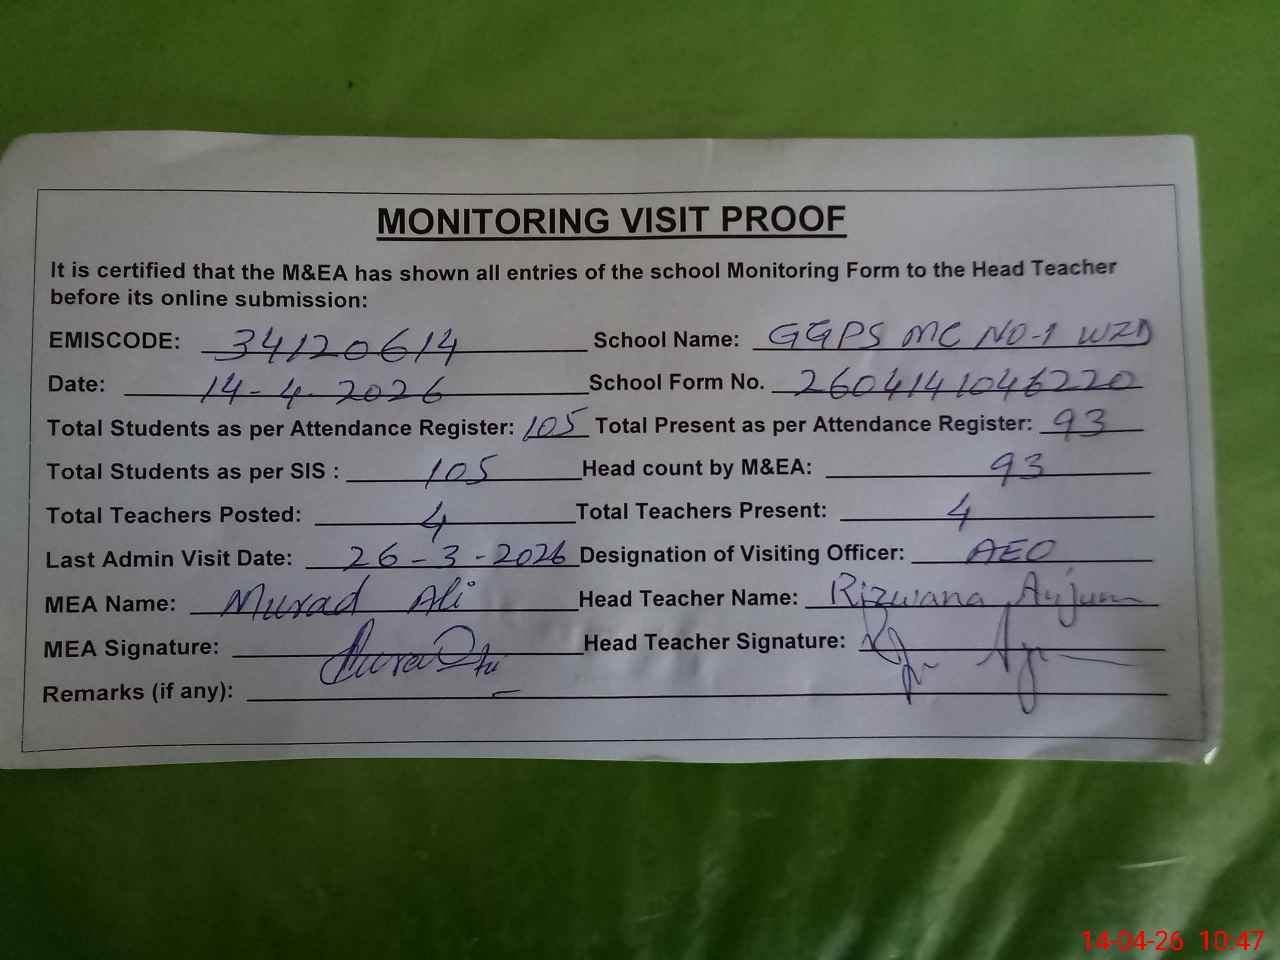 MONITORING VISIT PROOF
It is certified that the M&EA has shown all entries of the school Monitoring Form to the Head Teacher
before its online submission:
EMISCODE: 34120614 School Name: GGPS MC NO-1 WZD
Date: 14-4-2026 School Form No. 2604141046220
Total Students as per Attendance Register: 105 Total Present as per Attendance Register: 93
Total Students as per SIS : 105 Head count by M&EA: 93
Total Teachers Posted: 4 Total Teachers Present: 4
Last Admin Visit Date: 26-3-2026 Designation of Visiting Officer: AEO
MEA Name: Murad Ali Head Teacher Name: Rizwana Anjum
MEA Signature: Head Teacher Signature:
Remarks (if any): –
14-04-26 10:47